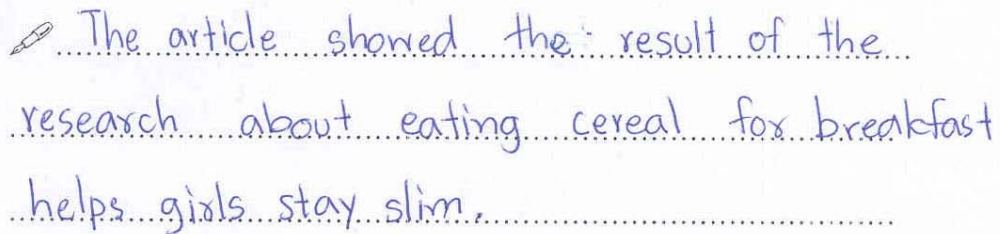 The article showed the result of the
research about eating cereal for breakfast
helps girls stay slim.